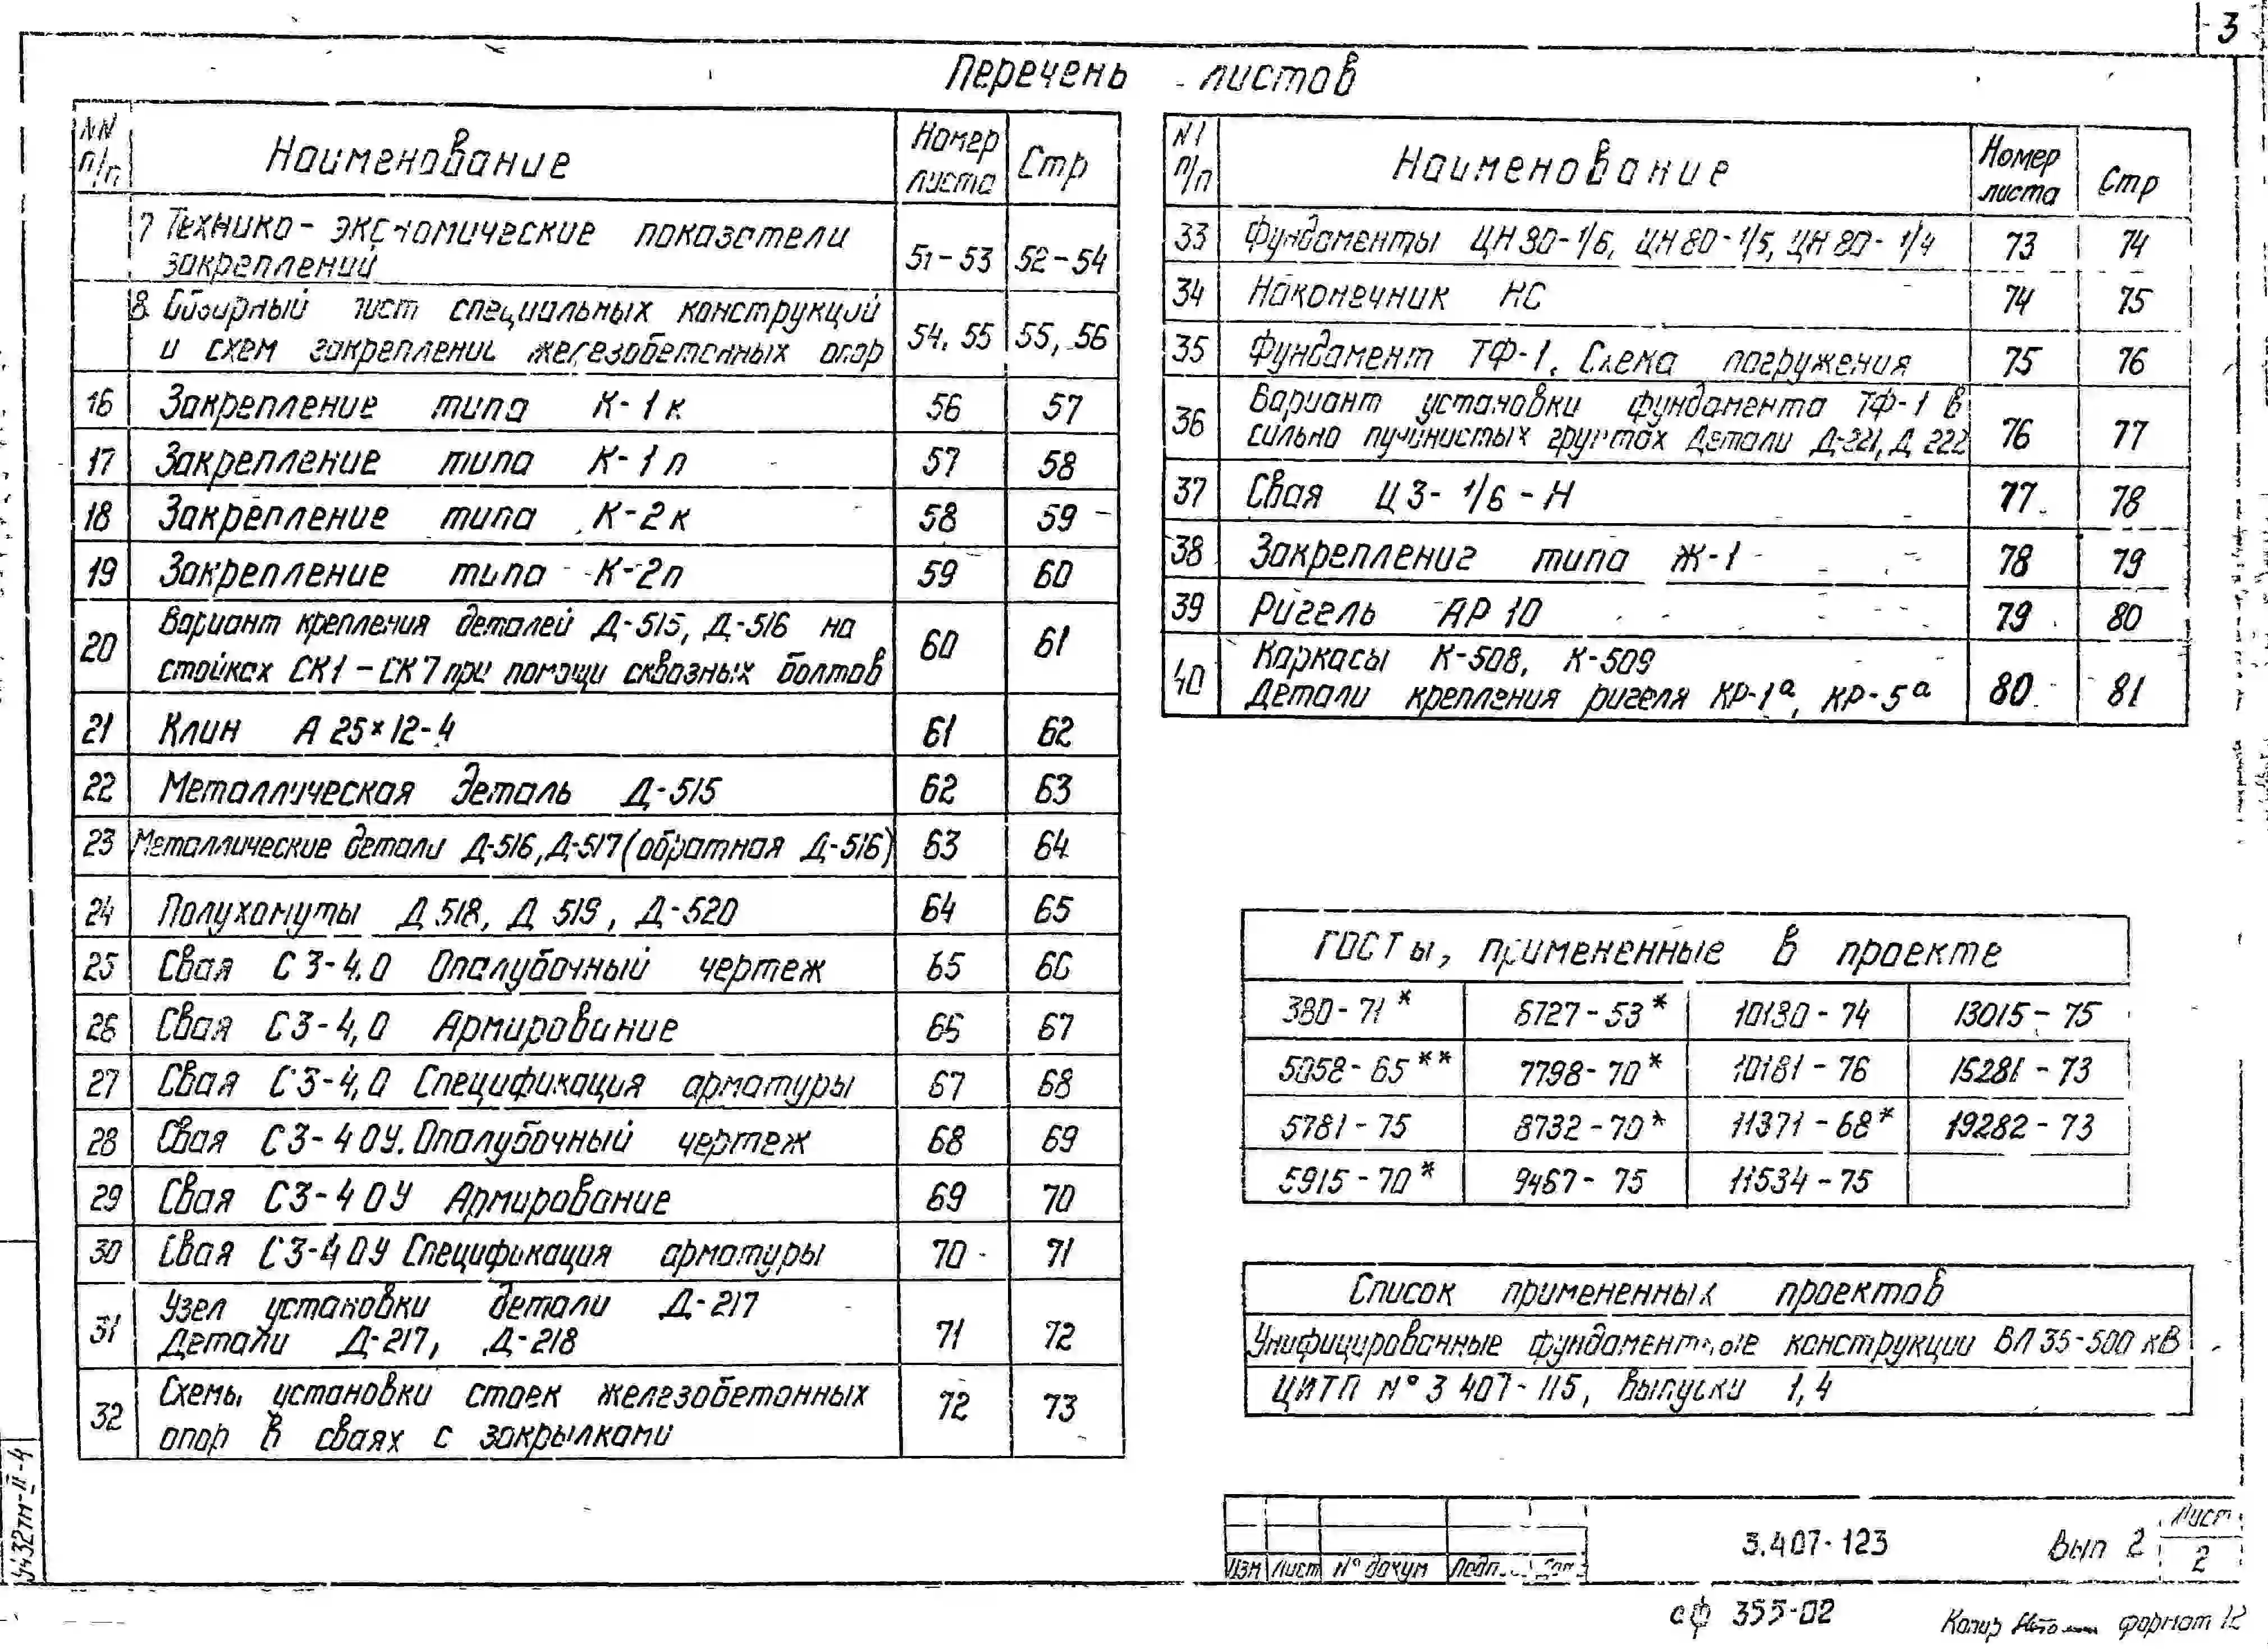 3
Перечень листов
NN п/п Наименование Номер листа Стр
7 Технико-экономические показатели закреплений 51-53 52-54
8 Обзорный лист специальных конструкций
и схем закреплений железобетонных опор 54, 55 55, 56
16 Закрепление типа К-1к 56 57
17 Закрепление типа К-1п 57 58
18 Закрепление типа К-2к 58 59
19 Закрепление типа К-2п 59 60
20 Вариант крепления деталей Д-515, Д-516 на
стойках СК1-СК7 при помощи сквозных болтов 60 61
21 Клин А 25×12-4 61 62
22 Металлическая деталь Д-515 62 63
23 Металлические детали Д-516, Д-517 (обратная Д-516) 63 64
24 Полухомуты Д 518, Д 519, Д-520 64 65
25 Свая С3-4.0 Опалубочный чертеж 65 66
26 Свая С3-4,0 Армирование 66 67
27 Свая С3-4,0 Спецификация арматуры 67 68
28 Свая С3-4 0У. Опалубочный чертеж 68 69
29 Свая С3-4 0У Армирование 69 70
30 Свая С3-4 0У Спецификация арматуры 70 71
31 Узел установки детали Д-217
Детали Д-217, Д-218 71 72
32 Схемы установки стоек железобетонных
опор в сваях с закрылками 72 73
N п/п Наименование Номер листа Стр
33 Фундаменты ЦН 80-1/6, ЦН 80-1/5, ЦН 80-1/4 73 74
34 Наконечник НС 74 75
35 Фундамент ТФ-1. Схема погружения 75 76
36 Вариант установки фундамента ТФ-1 в
сильно пучинистых грунтах Детали Д-221, Д 222 76 77
37 Свая Ц3-1/6-Н 77 78
38 Закрепление типа Ж-1 78 79
39 Ригель АР 10 79 80
40 Каркасы К-508, К-509
Детали крепления ригеля КР-1а, КР-5а 80 81
ГОСТы, примененные в проекте
380-71* 6727-53* 10180-74 13015-75
5058-65** 7798-70* 10181-76 15281-73
5781-75 8732-70* 11371-68* 19282-73
5915-70* 9467-75 11534-75
Список примененных проектов
Унифицированные фундаментные конструкции ВЛ 35-500 кВ
ЦИТП N° 3 407-115, выпуски 1,4
5432тм-II-4
Изм Лист N° докум Подп.
3.407-123 Вып 2 Лист 2
сф 355-02
Копир формат 12